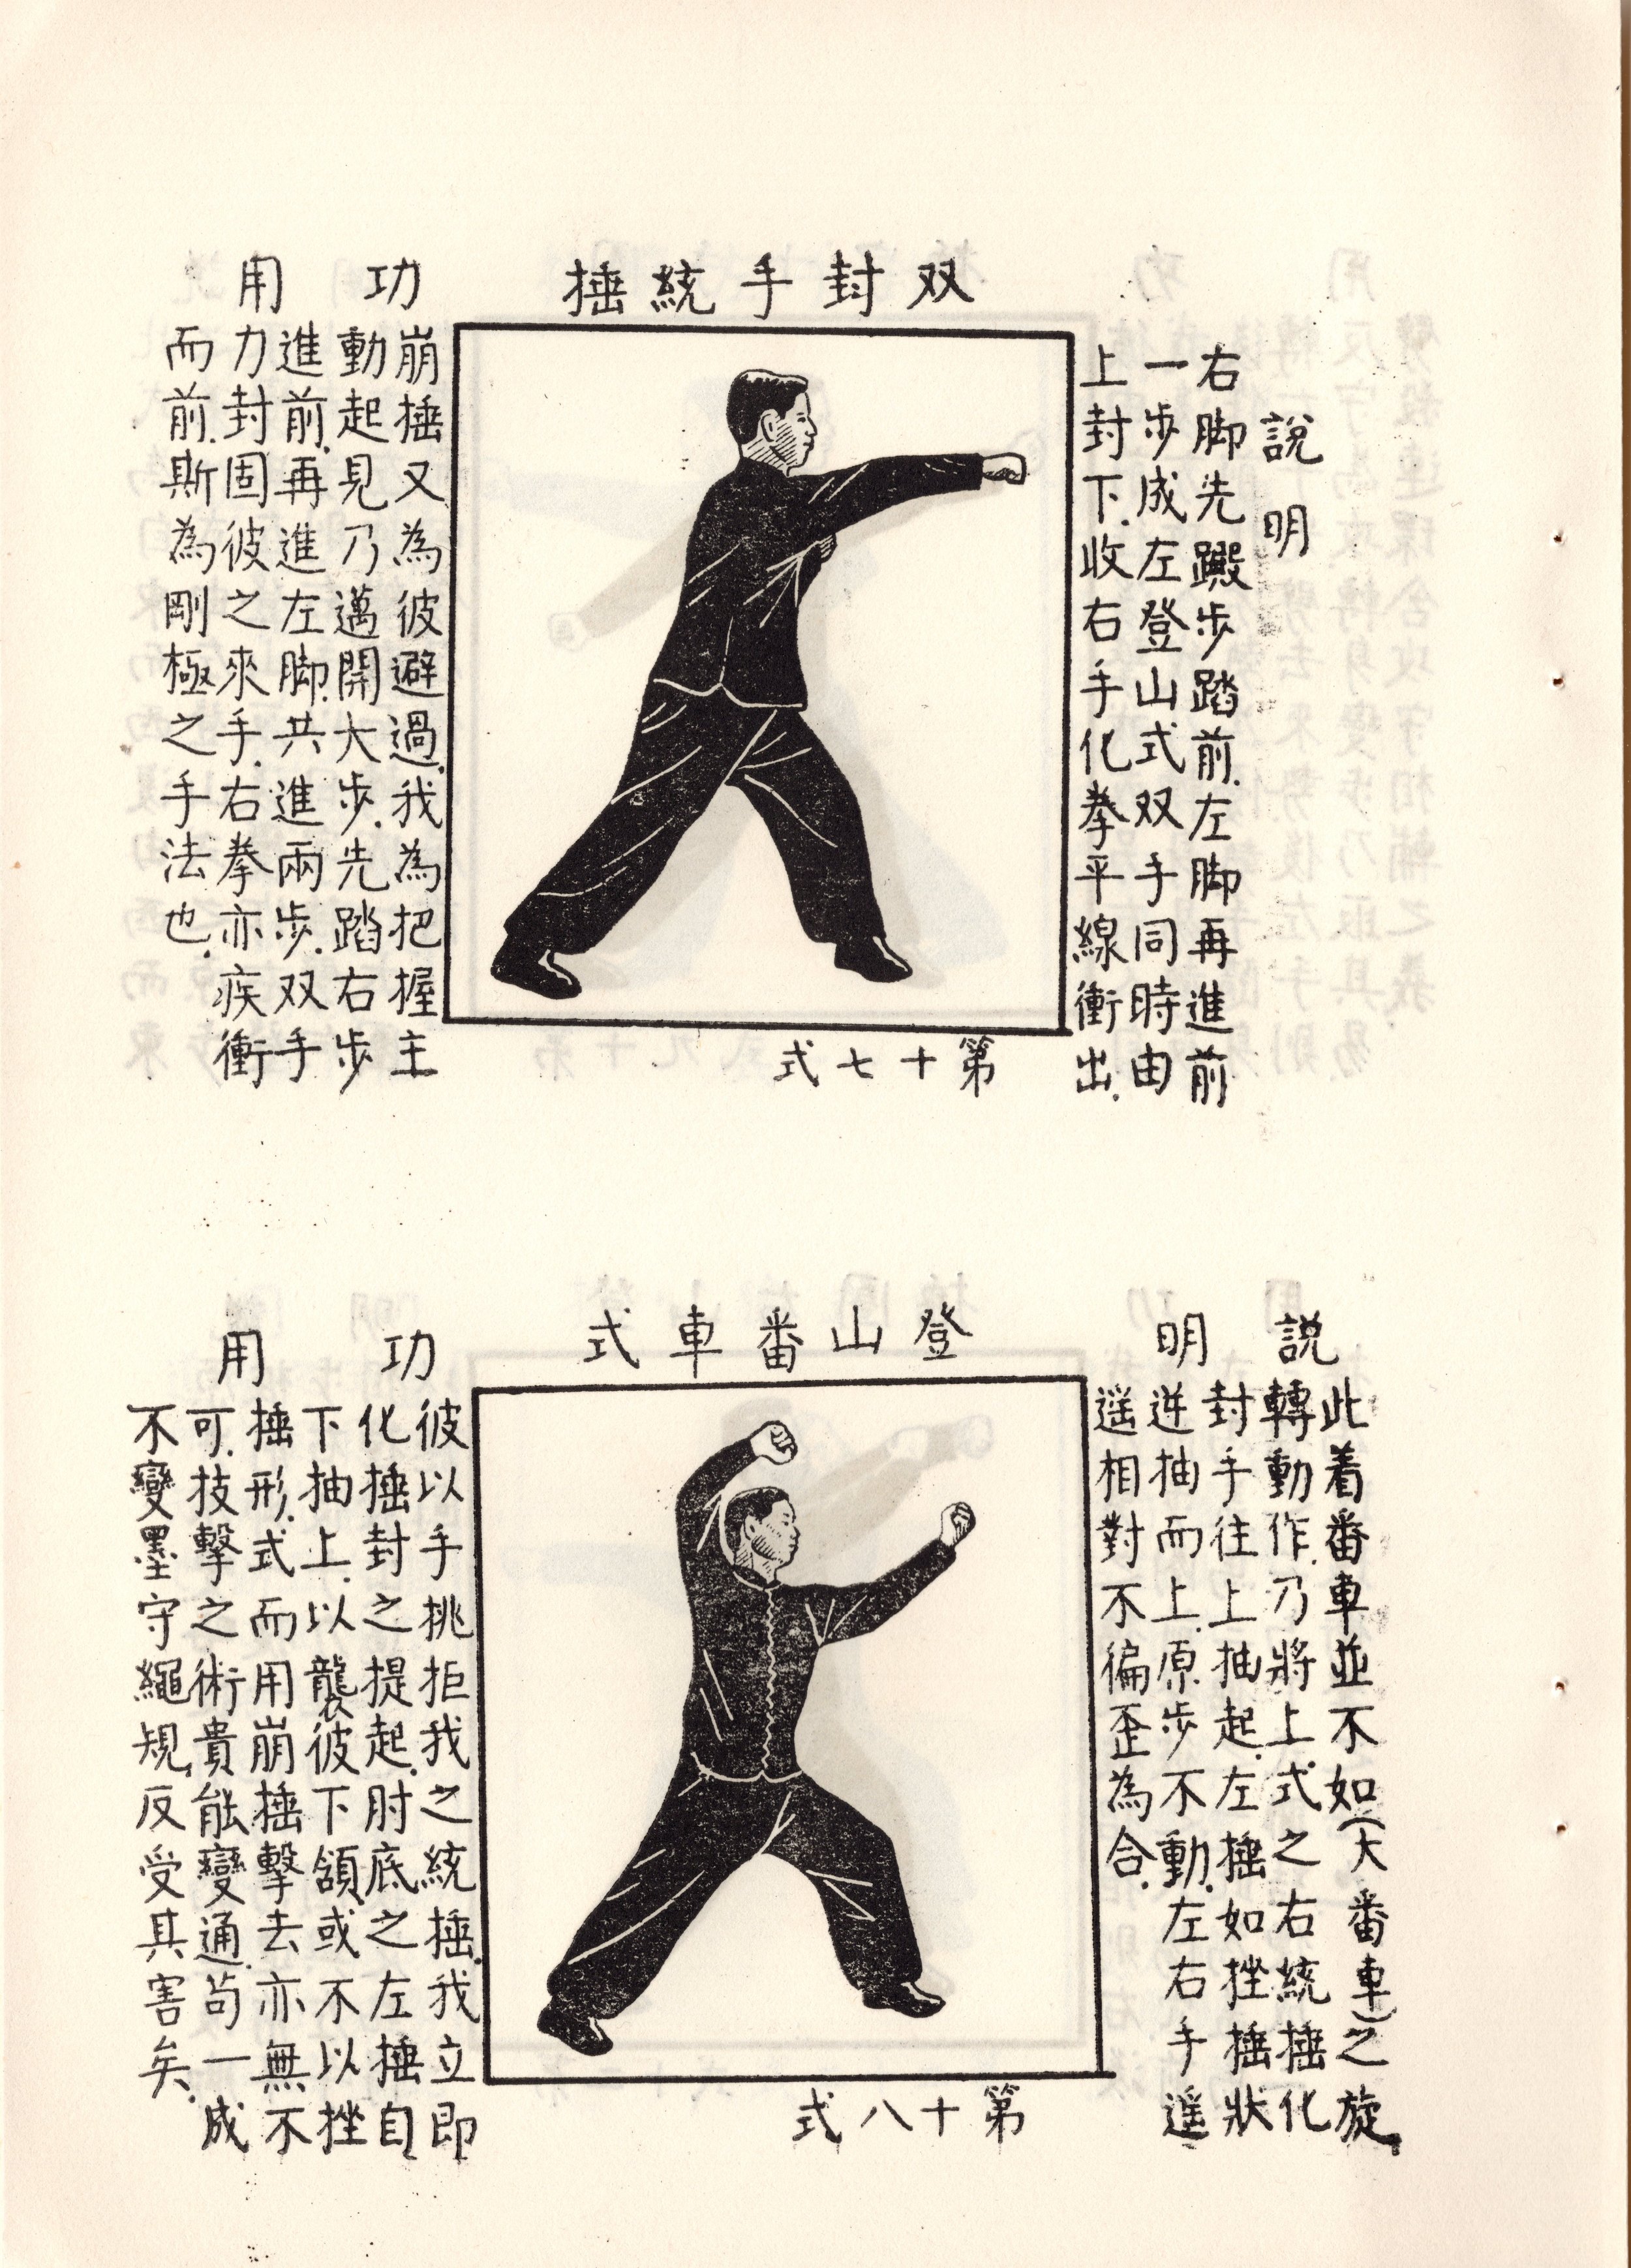 双封手統捶
說明
右脚先躣步踏前.左脚再進前
一步成左登山式双手同時由
上封下.收右手化拳平線衝出.
第十七式
功用
崩捶又為彼避過.我為把握主
動起見乃邁開大步.先踏右步
進前.再進左脚.共進兩步.双手
力封固彼之來手.右拳亦疾衝
而前.斯為剛極之手法也.
登山番車式
說明
此着番車並不如(大番車)之旋
轉動作.乃將上式之右統捶化
封手往上抽起.左捶如挫捶狀
逆抽而上.原步不動.左右手遥
遥相對不徧歪為合.
第十八式
功用
彼以手挑拒我之統捶.我立即
化捶封之提起.肘底之左捶自
下抽上.以襲彼下頷.或不以挫
捶形.式而用崩捶擊去亦無不
可.技擊之術貴能變通.苟一成
不變墨守繩規.反受其害矣.